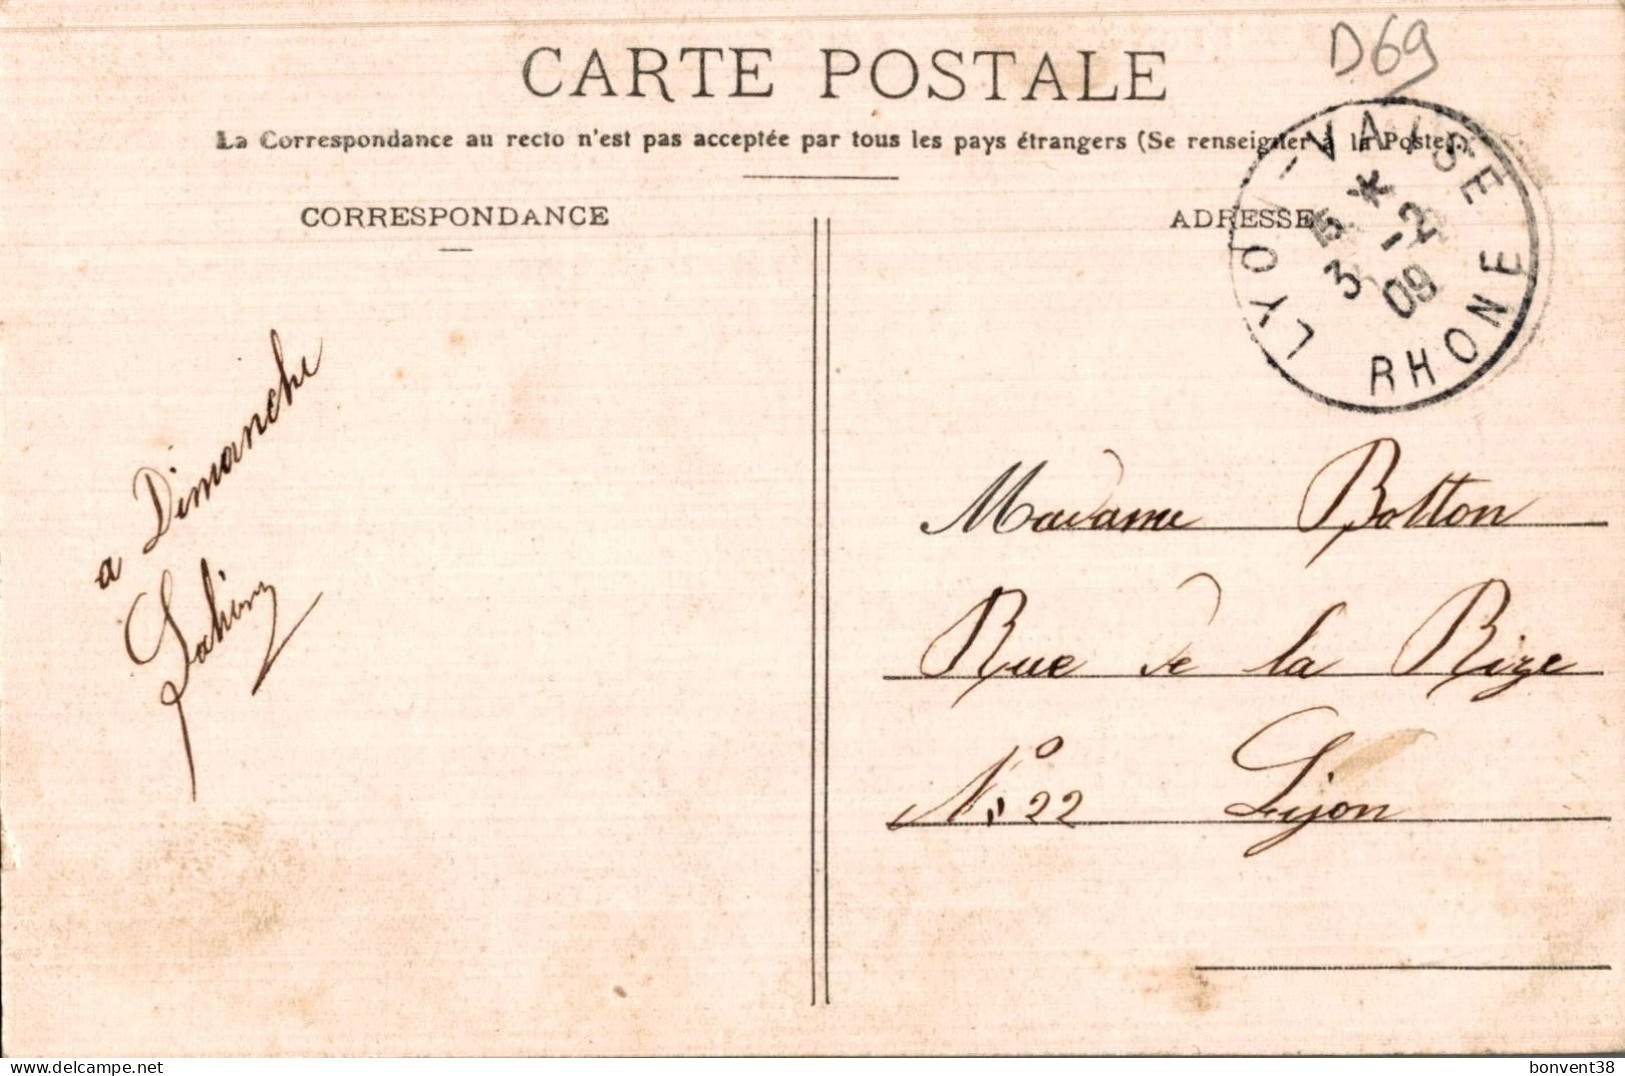 D69
CARTE POSTALE
La Correspondance au recto n'est pas acceptée par tous les pays étrangers (Se renseigner à la Poste.)
CORRESPONDANCE
ADRESSE
LYON-VAISE
5 *
3 -2
09
RHONE
a Dimanche
Madame Botton
Rue de la Rize
No 22 Lyon
bonvent38